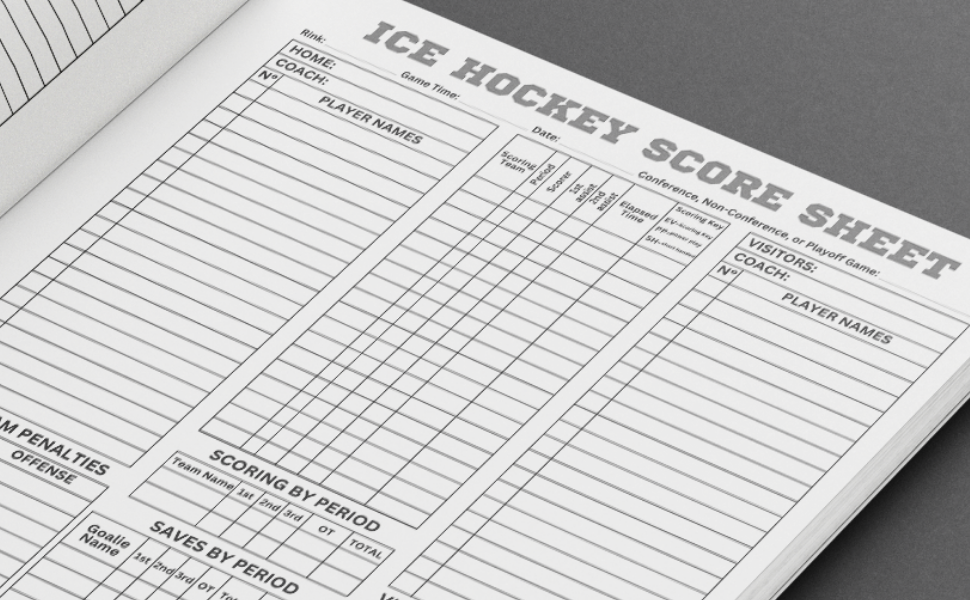 ICE HOCKEY SCORE SHEET
Rink:
Game Time:
Date:
Conference, Non-Conference, or Playoff Game:
HOME:
COACH:
Nº
PLAYER NAMES
Scoring
Team
Period
Scorer
1st
assist
2nd
assist
Elapsed
Time
Scoring Key
EV-Scoring Key
PP-power play
SH-
VISITORS:
COACH:
Nº
PLAYER NAMES
PENALTIES
OFFENSE
SCORING BY PERIOD
Team Name 1st 2nd 3rd OT TOTAL
SAVES BY PERIOD
Goalie
Name
1st 2nd 3rd OT